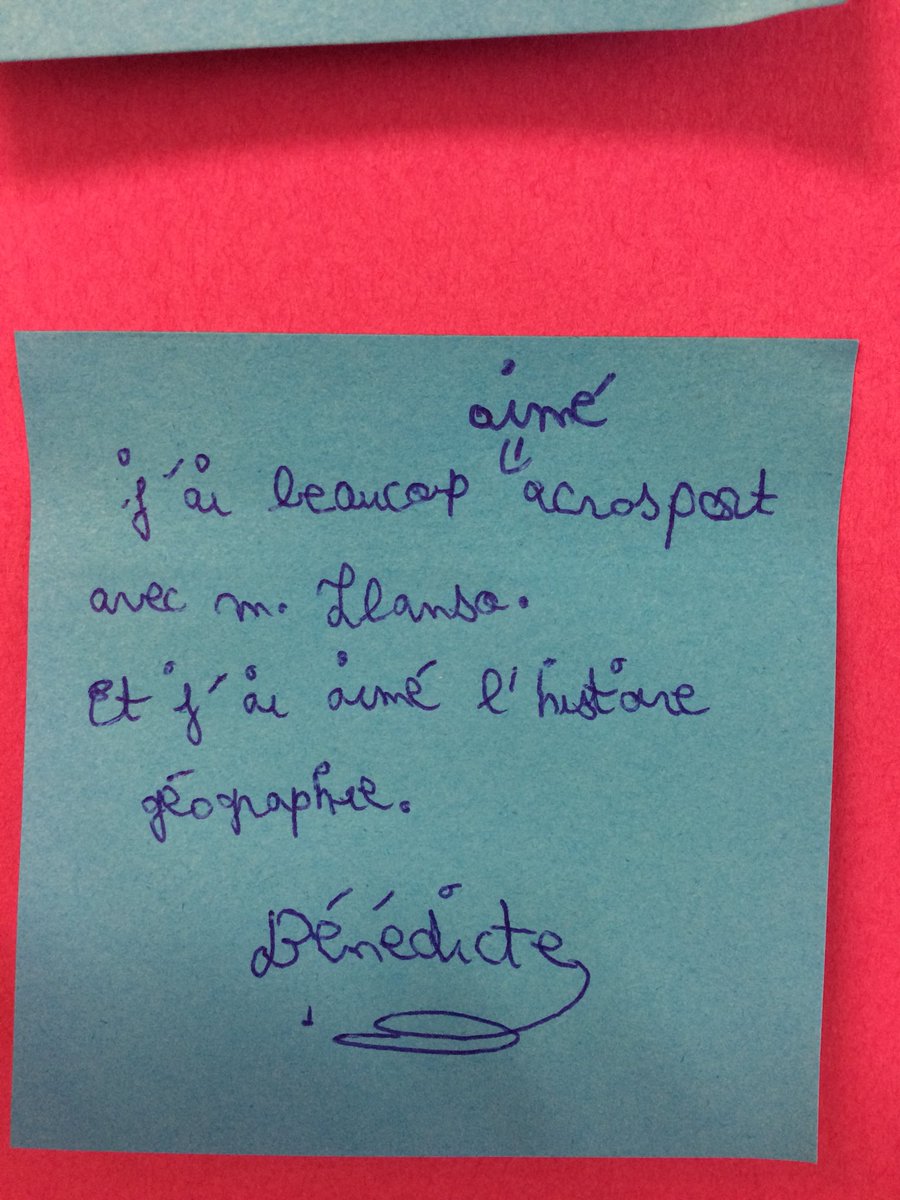 aimé
j'ai beaucop acrosport
avec m. Llanso.
Et j'ai aimé l'histoire
géographie.
Bénédicte